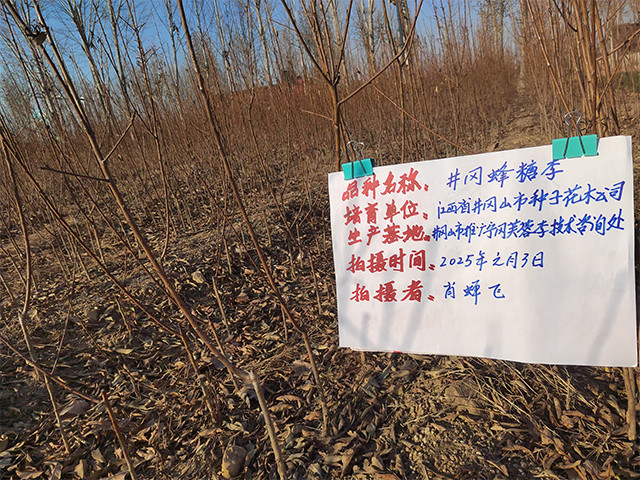 品种名称：井冈蜂糖李
培育单位：江西省井冈山市种子花木公司
生产基地：井冈山市推广井冈芙蓉李技术咨询处
拍摄时间：2025年元月3日
拍摄者：肖蝉飞